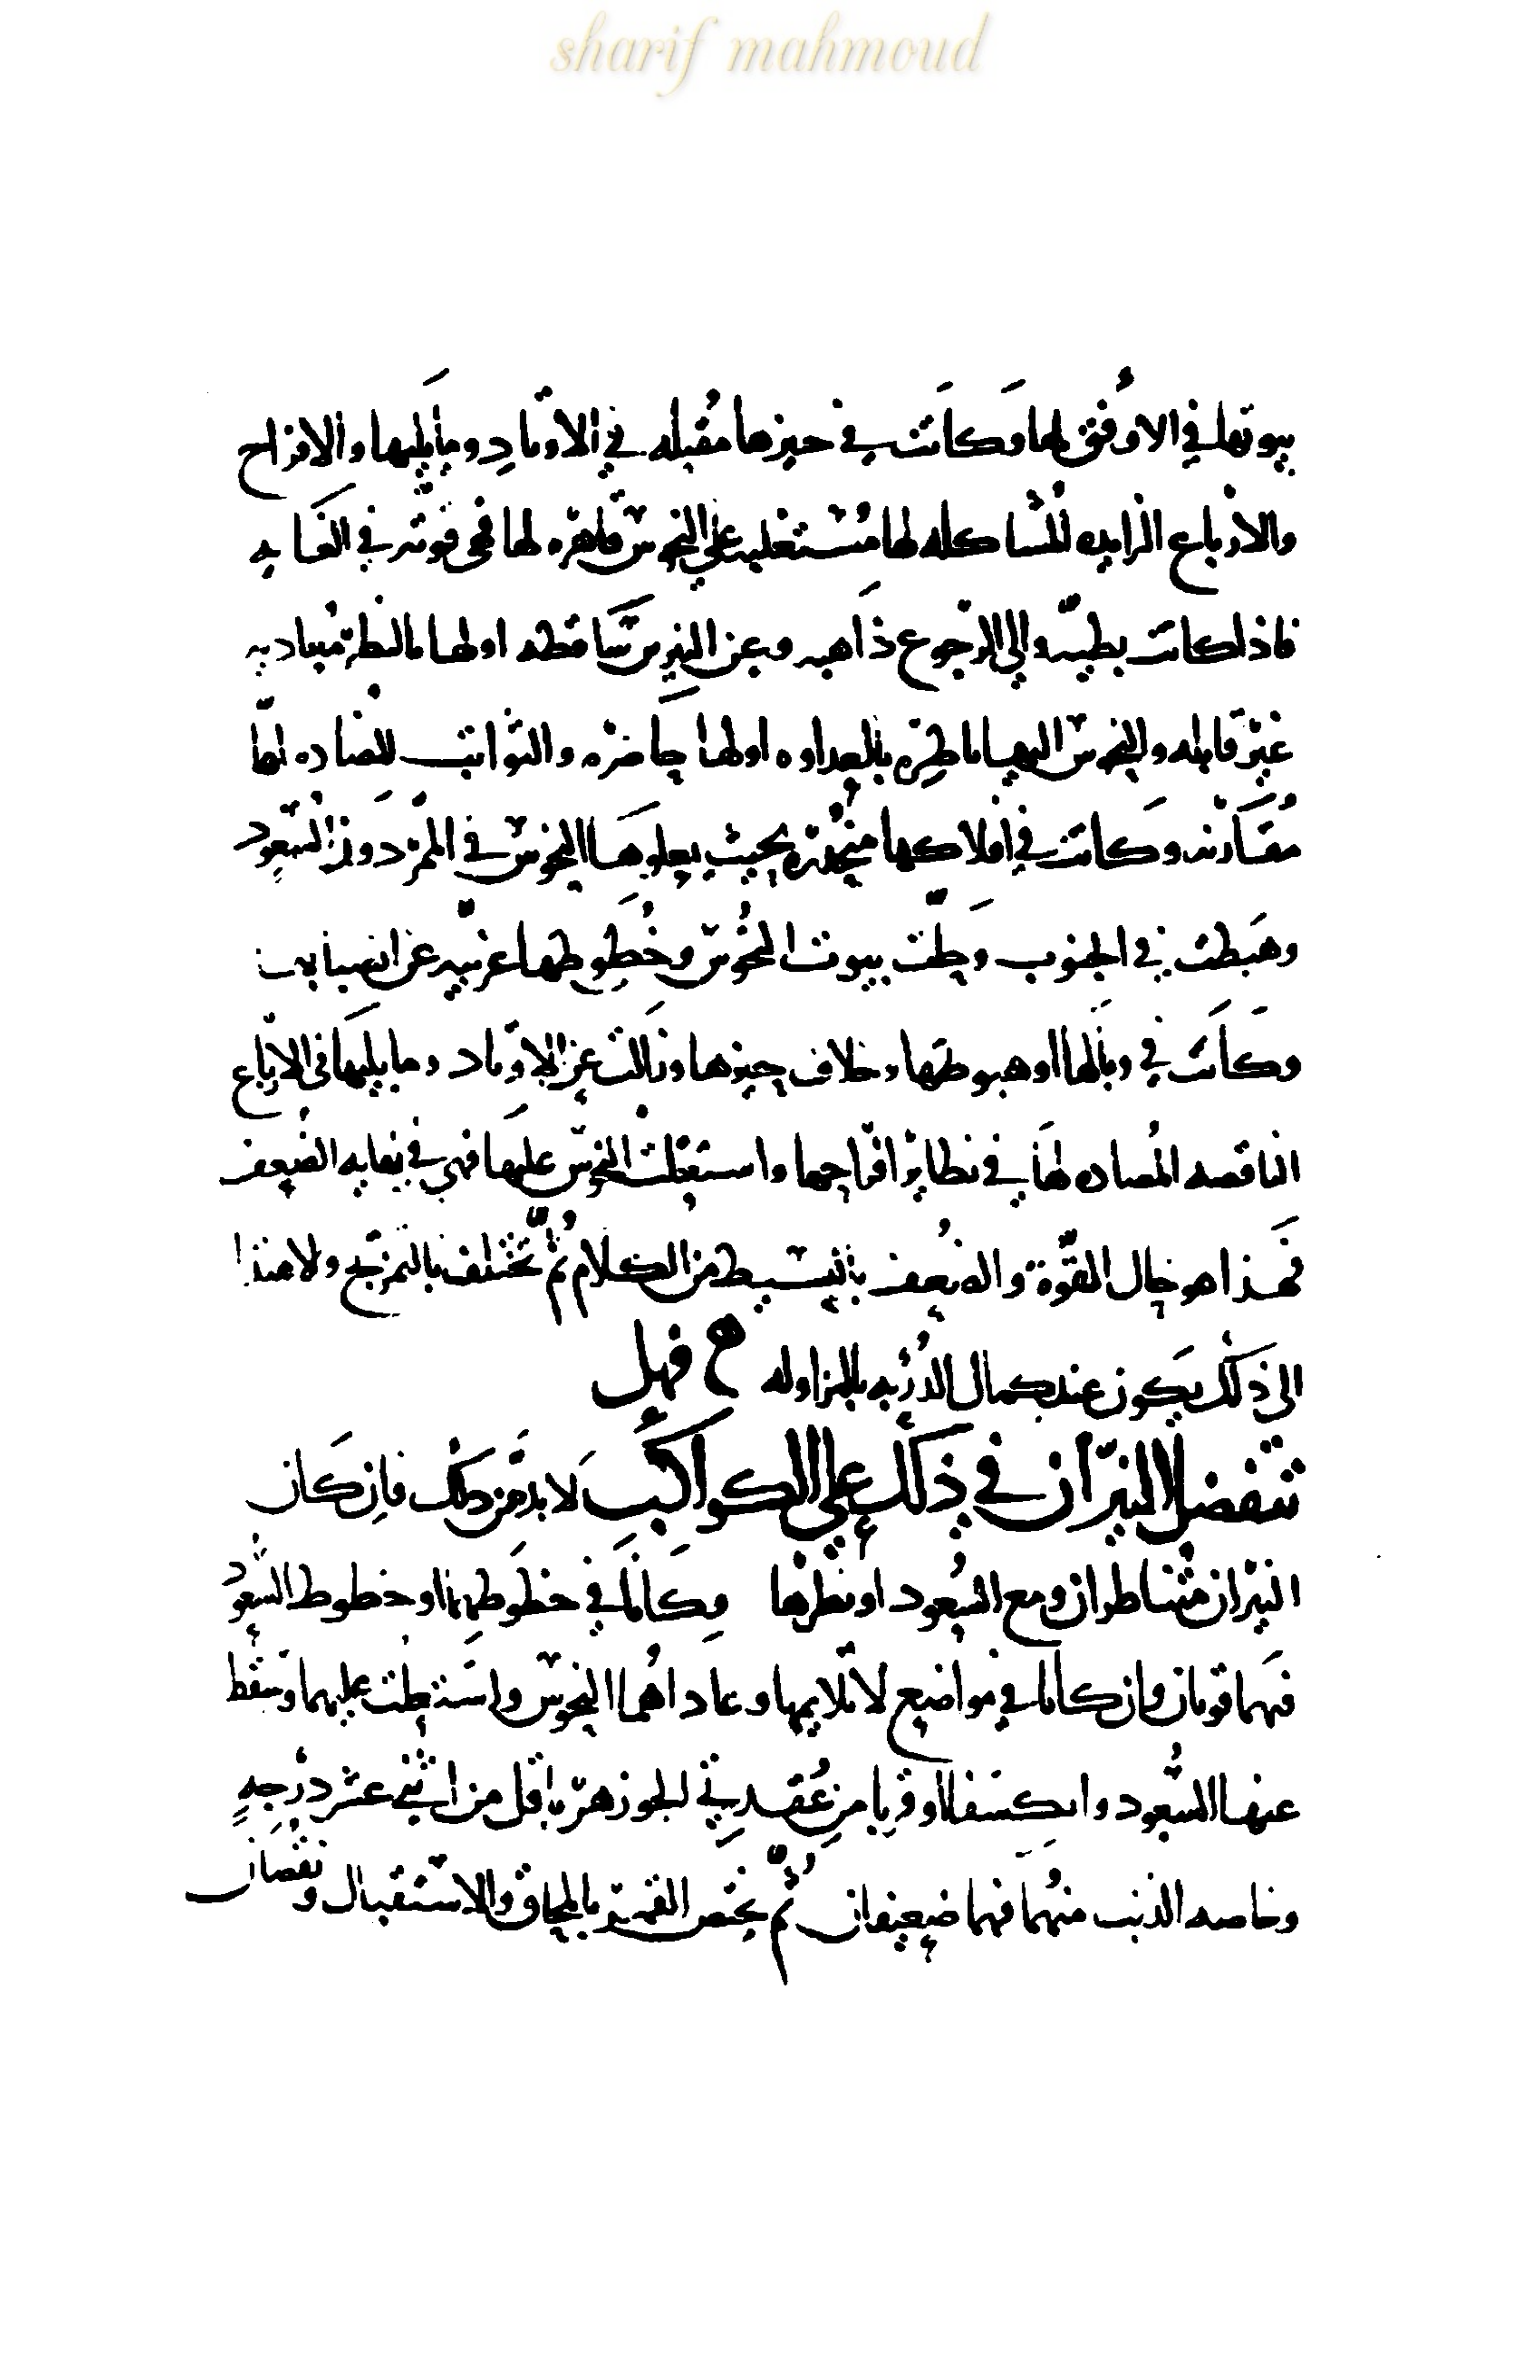 sharif mahmoud
بيوتها في الاوفق لها وكانت في حيزها مقبله في الاوتاد وما يليها والافراح
والارباع الزايده المشاكله لها مستعليه على النحوس قاهره لها فهي قويه في الغايه
فاذا كانت بطيه والى الرجوع ذاهبه وعن النيرين ساقطه اولها بالنظر معاديه
غير قابله والنحوس اليها ناظره بالعداوه اولها حاصره والثوابت المضاده لها
مقارنه وكانت في افلاكها منحدره بحيث يعلوها النحوس في الممر دون السعود
وهبطت في الجنوب وحلت بيوت النحوس وخطوطها غريبه عن انصبابات
وكانت في وبالها او هبوطها وخلاف حيزها وزالت عن الاوتاد وما يليها في الارباع
الناقصه المضاده لها في نظاير افراحها واستعلت النحوس عليها فهي في نهايه الضعف
فهذا هو حال القوة والضعف بالبسيط من الكلام ثم تختلف بالتمزيج والاهتدا
الى ذلك يكون عند كمال الدربه بالمزاوله فهل
تتفضل النيران في ذلك على الكواكب لا بد من ذلك فان كان
النيران متناظران ومع السعود او نظرها وكانا في خطوطهما او خطوط السعود
فهما قويان وان كانا في مواضع لا تلايمها وعاداهما النحوس واستعلت عليهما وسقط
عنهما السعود وانكسفا او قربا من عقدتي الجوزهر باقل من اثني عشر درجه
وخاصه الذنب منهما فهما ضعيفان ثم يختص القمر بالمحاق والاستقبال ونقصان